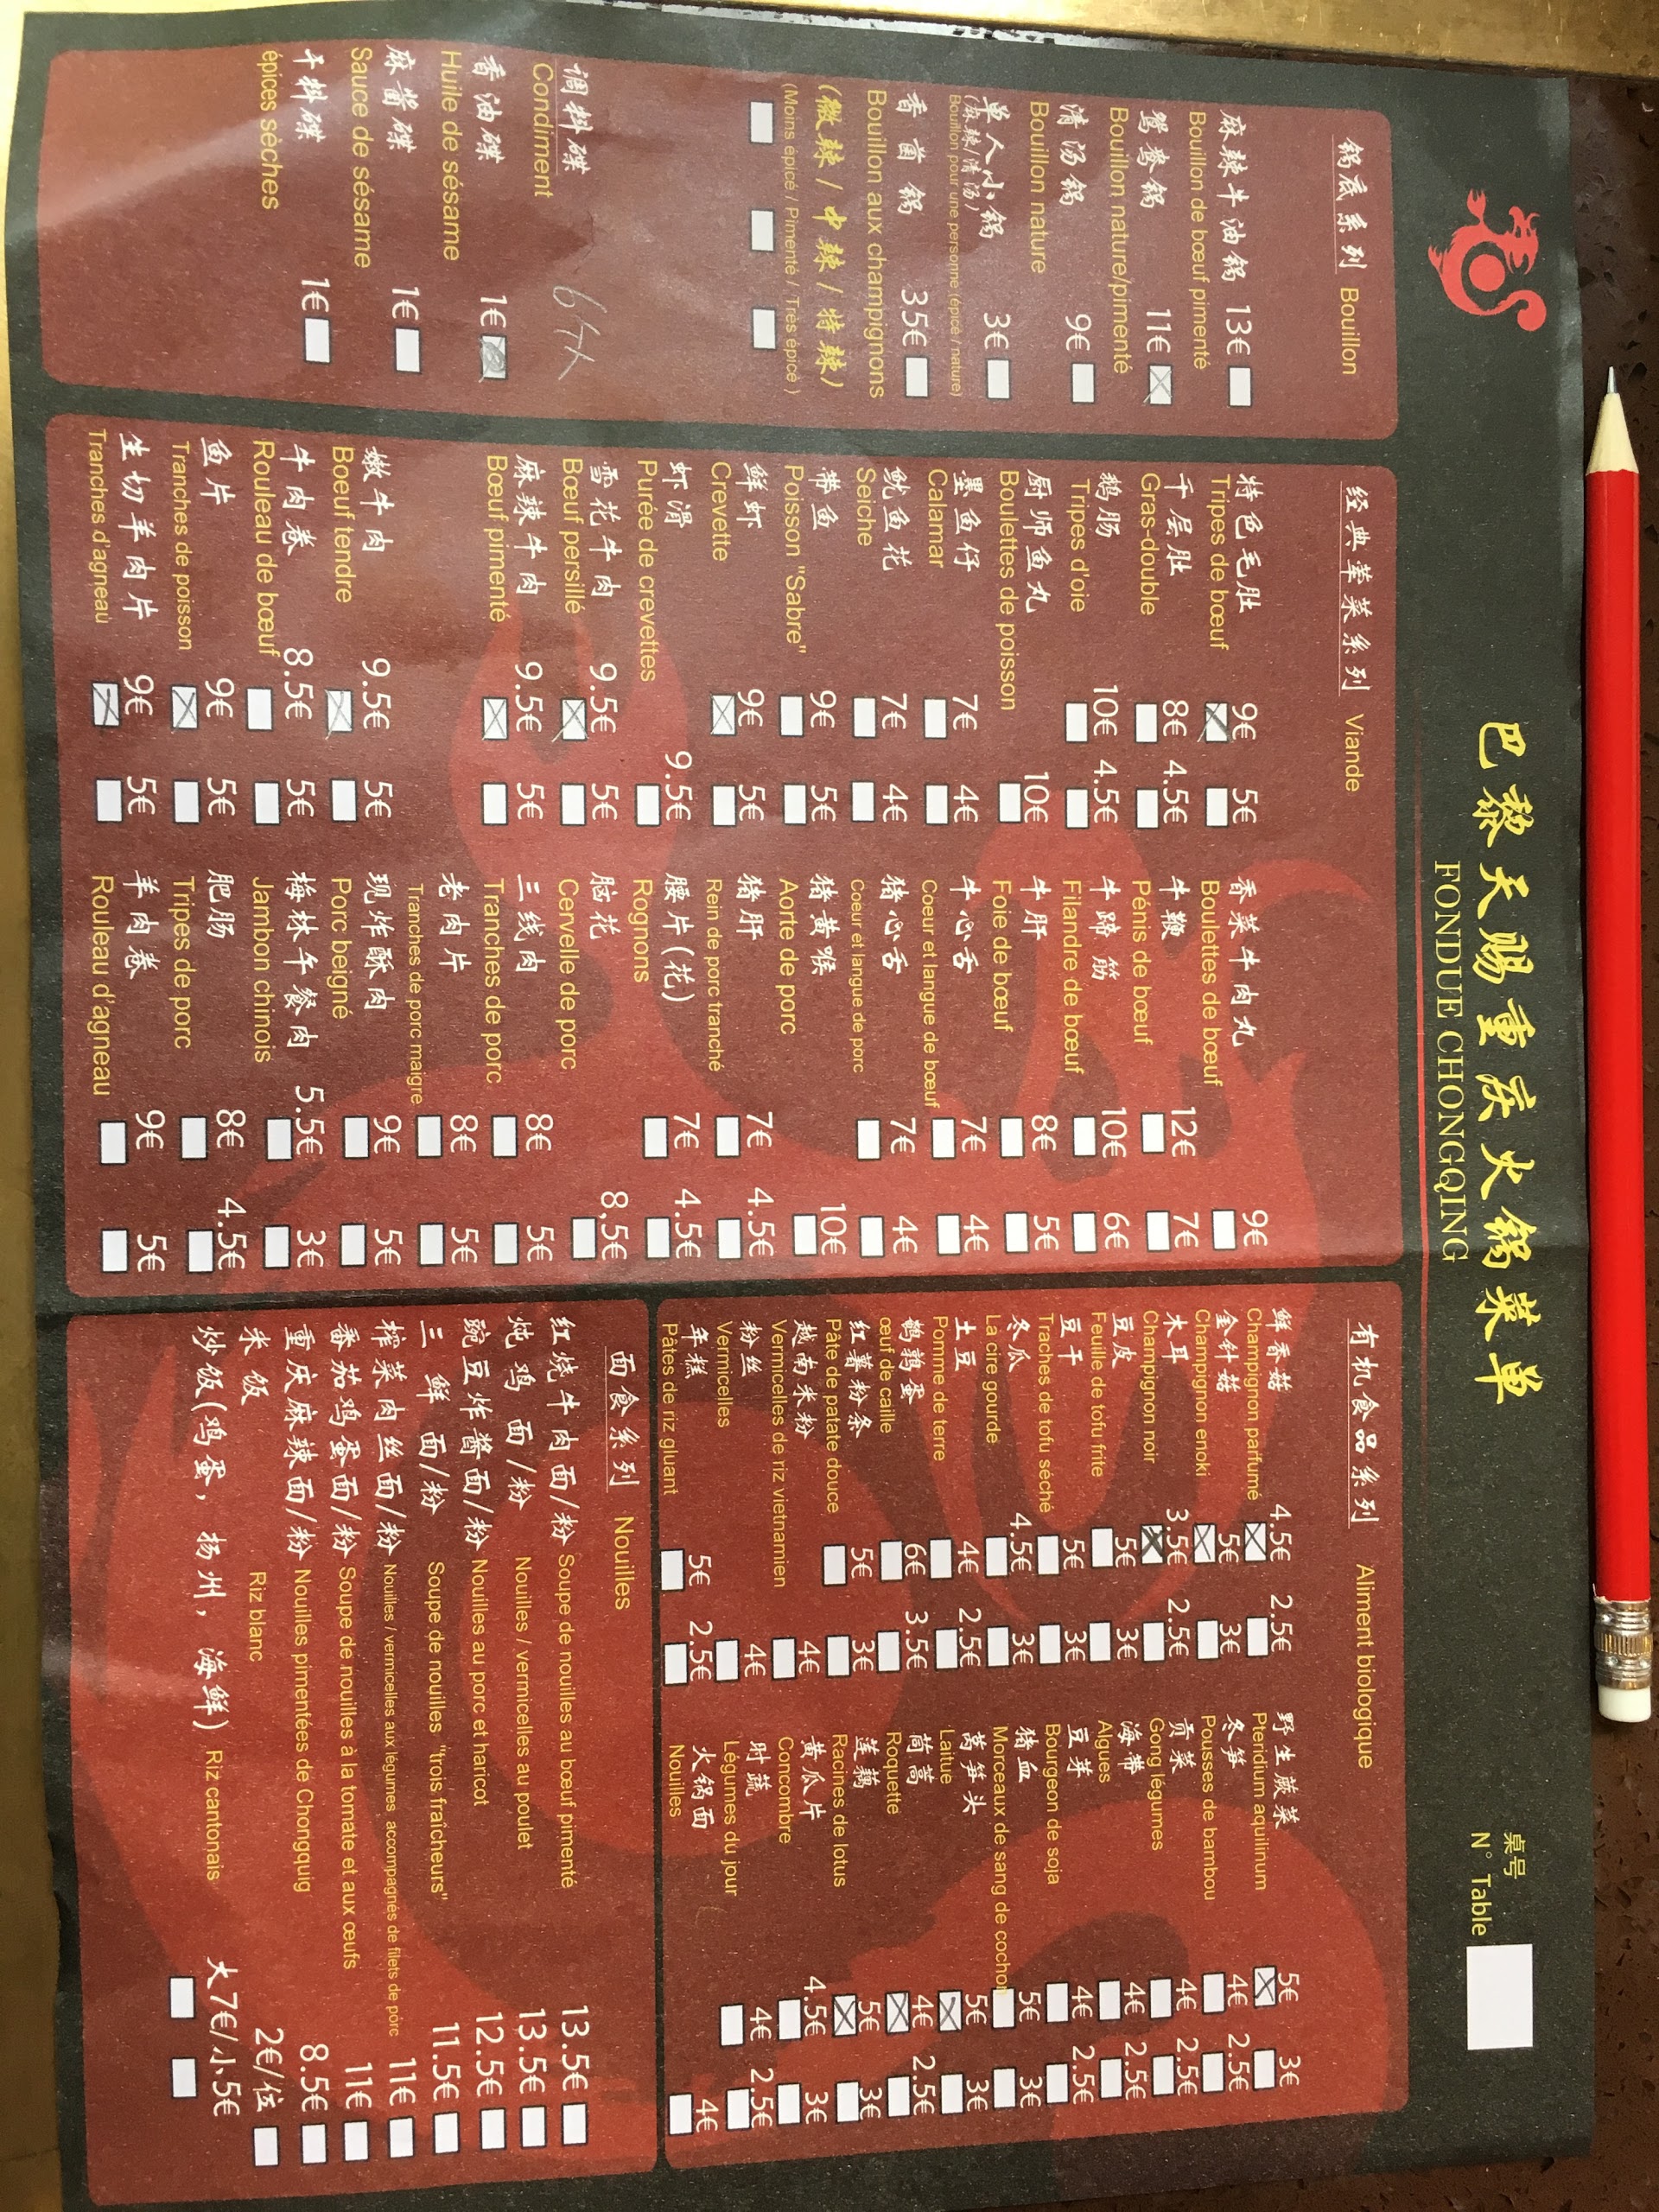 巴黎天赐重庆火锅菜单
FONDUE CHONGQING
桌号
N° Table
锅底系列 Bouillon
麻辣牛油锅 13€
Bouillon de bœuf pimenté
鸳鸯锅 11€
Bouillon nature/pimenté
清汤锅 9€
Bouillon nature
单人小锅 3€
(麻辣/清汤)
Bouillon pour une personne (épicé / nature)
香菌锅 35€
Bouillon aux champignons
(微辣/中辣/特辣)
(Moins épicé / Pimenté / Très épicé)
调料碟
Condiment
香油碟 1€
Huile de sésame
麻酱碟 1€
Sauce de sésame
干料碟 1€
épices sèches
经典荤菜系列 Viande
特色毛肚 9€ 5€
Tripes de bœuf
千层肚 8€ 4.5€
Gras-double
鹅肠 10€ 4.5€
Tripes d'oie
厨师鱼丸 10€
Boulettes de poisson
墨鱼仔 7€ 4€
Calamar
鱿鱼花 7€ 4€
Seiche
带鱼 9€ 5€
Poisson "Sabre"
鲜虾 9€ 5€
Crevette
虾滑 9.5€
Purée de crevettes
雪花牛肉 9.5€ 5€
Bœuf persillé
麻辣牛肉 9.5€ 5€
Bœuf pimenté
嫩牛肉 9.5€ 5€
Boeuf tendre
牛肉卷 8.5€ 5€
Rouleau de bœuf
鱼片 9€ 5€
Tranches de poisson
生切羊肉片 9€ 5€
Tranches d'agneau
香菜牛肉丸 9€
Boulettes de bœuf
牛鞭 12€ 7€
Pénis de bœuf
牛蹄筋 10€ 6€
Filandre de bœuf
牛肝 8€ 5€
Foie de bœuf
牛心舌 7€ 4€
Coeur et langue de bœuf
猪心舌 7€ 4€
Coeur et langue de porc
猪黄喉 10€
Aorte de porc
猪肝 7€ 4.5€
Rein de porc tranché
腰片(花) 7€ 4.5€
Rognons
脑花 8,5€
Cervelle de porc
三线肉 8€ 5€
Tranches de porc
老肉片 8€ 5€
Tranches de porc maigre
现炸酥肉 9€ 5€
Porc beigné
梅林午餐肉 5.5€ 3€
Jambon chinois
肥肠 8€ 4.5€
Tripes de porc
羊肉卷 9€ 5€
Rouleau d'agneau
有机食品系列 Aliment biologique
鲜香菇 4.5€ 2.5€
Champignon parfumé
金针菇 5€ 3€
Champignon enoki
木耳 3.5€ 2.5€
Champignon noir
豆皮 5€ 3€
Feuille de tofu frite
豆干 5€ 3€
Traches de tofu séché
冬瓜 4.5€ 3€
La cire gourde
土豆 4€ 2.5€
Pomme de terre
鹌鹑蛋 6€ 3.5€
œuf de caille
红薯粉条 5€ 3€
Pâte de patate douce
越南米粉 4€
Vermicelles de riz vietnamien
粉丝 4€
Vermicelles
年糕 5€ 2.5€
Pâtes de riz gluant
野生蕨菜 5€ 3€
Pteridium aquilinum
冬笋 4€ 2.5€
Pousses de bambou
贡菜 4€ 2.5€
Gong légumes
海带 4€ 2.5€
Algues
豆芽 4€ 2.5€
Bourgeon de soja
猪血 5€ 3€
Morceaux de sang de cochon
莴笋头 5€ 3€
Laitue
茼蒿 4€ 2.5€
Roquette
莲藕 5€ 3€
Racines de lotus
黄瓜片 4.5€ 3€
Concombre
时蔬 4€ 2.5€
Légumes du jour
火锅面 4€
Nouilles
面食系列 Nouilles
红烧牛肉面/粉 Soupe de nouilles au bœuf pimenté 13.5€
炖鸡面/粉 Nouilles / vermicelles au poulet 13.5€
豌豆炸酱面/粉 Nouilles au porc et haricot 12.5€
三鲜面/粉 Soupe de nouilles "trois fraîcheurs" 11.5€
榨菜肉丝面/粉 Nouilles / vermicelles aux légumes accompagnés de filets de porc 11€
番茄鸡蛋面/粉 Soupe de nouilles à la tomate et aux œufs 11€
重庆麻辣面/粉 Nouilles pimentées de Chongquig 8.5€
米饭 Riz blanc 2€/位
炒饭(鸡蛋，扬州，海鲜) Riz cantonais 大7€/小5€